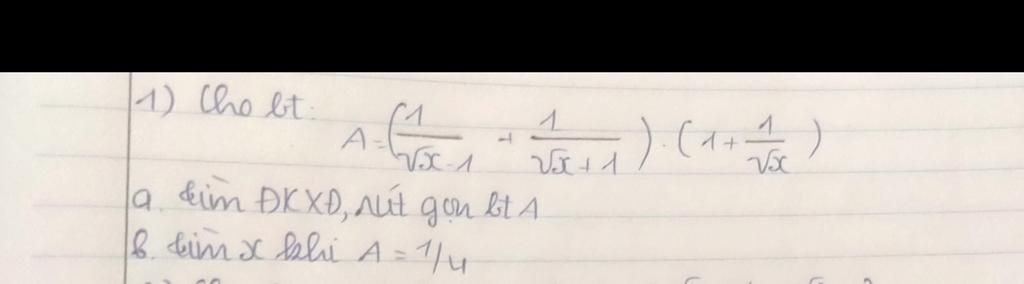 1) Cho bt:
A = (1/(√x - 1) + 1/(√x + 1)) . (1 + 1/√x)
a. tìm ĐKXĐ, rút gọn bt A
b. tìm x khi A = 1/4